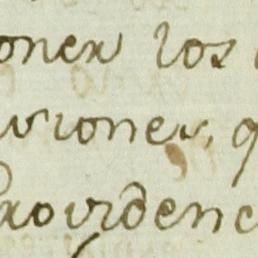 oner los
viones, q
Providenc